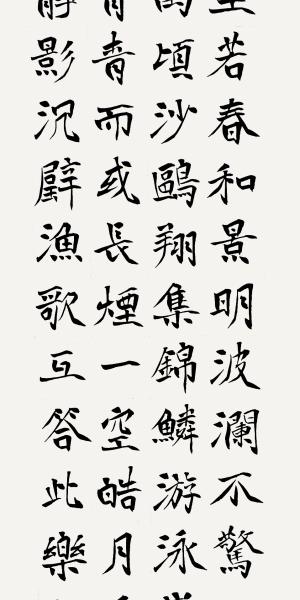 至若春和景明波瀾不驚
萬頃沙鷗翔集錦鱗游泳
青青而或長煙一空皓月
靜影沉璧漁歌互答此樂